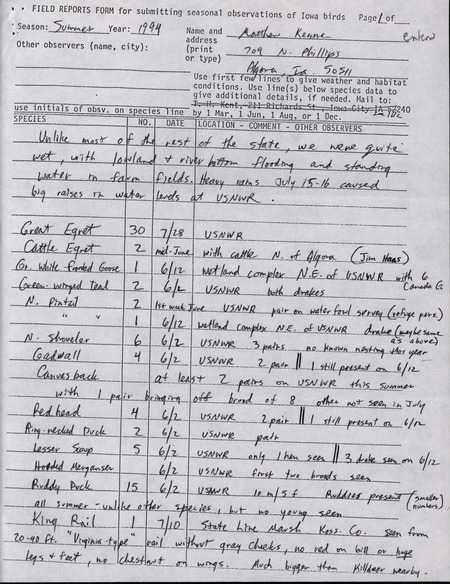 • FIELD REPORTS FORM for submitting seasonal observations of Iowa birds Page 1 of
Season: Summer Year: 1994 Name and Matthew Kenne
Other observers (name, city): address 709 N. Phillips
(print
or type) Algona Ia. 50511
Use first few lines to give weather and habitat
conditions. Use line(s) below species data to
give additional details, if needed. Mail to:
T. H. Kent, 211 Richards St., Iowa City IA 52240
use initials of obsv. on species line by 1 Mar, 1 Jun, 1 Aug, or 1 Dec.
SPECIES NO. DATE LOCATION - COMMENT - OTHER OBSERVERS
Unlike most of the rest of the state, we were quite
wet, with lowland & river bottom flooding and standing
water in farm fields. Heavy rains July 15-16 caused
big raises in water levels at USNWR.
Great Egret 30 7/28 USNWR
Cattle Egret 2 mid-June with cattle N. of Algona (Jim Haas)
Gr. White Fronted Goose 1 6/12 Wetland complex N.E. of USNWR with 6 Canada G.
Green-winged Teal 2 6/2 USNWR both drakes
N. Pintail 2 1st week June USNWR pair on waterfowl survey (refuge pers.)
" " 1 6/12 wetland complex N.E. of USNWR drake (maybe same as above)
N. Shoveler 6 6/2 USNWR 3 pairs no known nesting this year
Gadwall 4 6/2 USNWR 2 pair || 1 still present on 6/12
Canvasback at least 2 pairs on USNWR this summer
with 1 pair bringing off brood of 8 other not seen in July
Redhead 4 6/2 USNWR 2 pair || 1 still present on 6/12
Ring-necked Duck 2 6/2 USNWR pair
Lesser Scaup 5 6/2 USNWR only 1 hen seen || 3 drake seen on 6/12
Hooded Merganser 6/2 USNWR first two broods seen
Ruddy Duck 15 6/2 USNWR 10 m/5 f Ruddies present (smaller numbers)
all summer - unlike other species, but no young seen
King Rail 1 7/10 State Line Marsh Koss. Co. seen from
20-40 ft. "Virginia-type" rail without gray cheeks, no red on bill or huge
legs & feet, no chestnut on wings. Much bigger than Killdeer nearby.